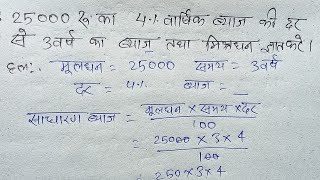 25000 रु० का 4% वार्षिक ब्याज की दर
से 3 वर्ष का ब्याज तथा मिश्रधन ज्ञात करें।
हलः- मूलधन = 25000 समय = 3 वर्ष
दर = 4% ब्याज = _
साधारण ब्याज = मूलधन × समय × दर
100
= 25000 × 3 × 4
100
= 250 × 3 × 4